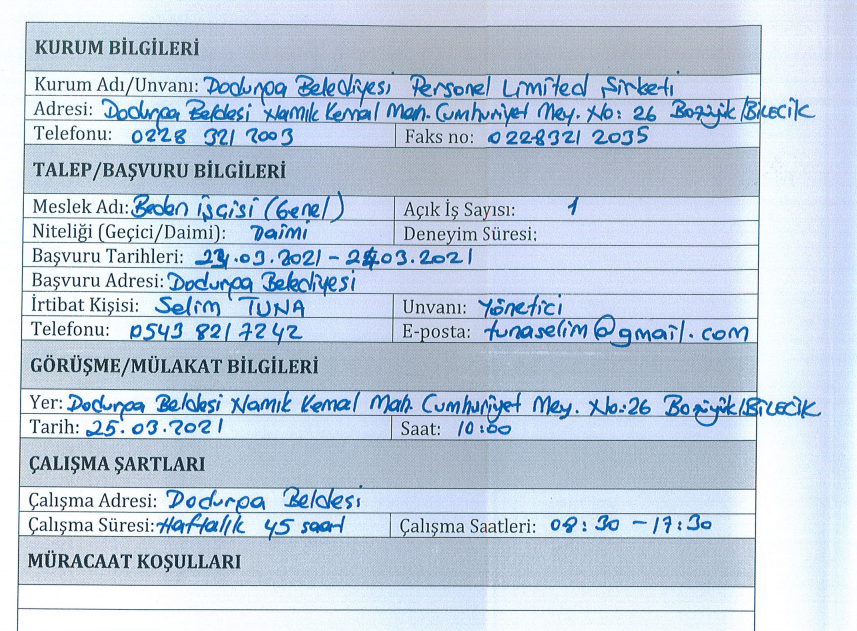 KURUM BİLGİLERİ
Kurum Adı/Unvanı: Dodurga Belediyesi Personel Limited Şirketi
Adresi: Dodurga Beldesi Namık Kemal Mah. Cumhuriyet Mey. No: 26 Bozüyük/BİLECİK
Telefonu: 0228 321 2003 Faks no: 0228321 2035
TALEP/BAŞVURU BİLGİLERİ
Meslek Adı: Beden işçisi (Genel) Açık İş Sayısı: 1
Niteliği (Geçici/Daimi): Daimi Deneyim Süresi:
Başvuru Tarihleri: .03.2021 - .03.2021
Başvuru Adresi: Dodurga Belediyesi
İrtibat Kişisi: Selim TUNA Unvanı: Yönetici
Telefonu: 0543 821 7242 E-posta: tunaselim@gmail.com
GÖRÜŞME/MÜLAKAT BİLGİLERİ
Yer: Dodurga Beldesi Namık Kemal Mah. Cumhuriyet Mey. No:26 Bozüyük/BİLECİK
Tarih: 25.03.2021 Saat: 10:00
ÇALIŞMA ŞARTLARI
Çalışma Adresi: Dodurga Beldesi
Çalışma Süresi: Haftalık 45 saat Çalışma Saatleri: 08:30 - 17:30
MÜRACAAT KOŞULLARI